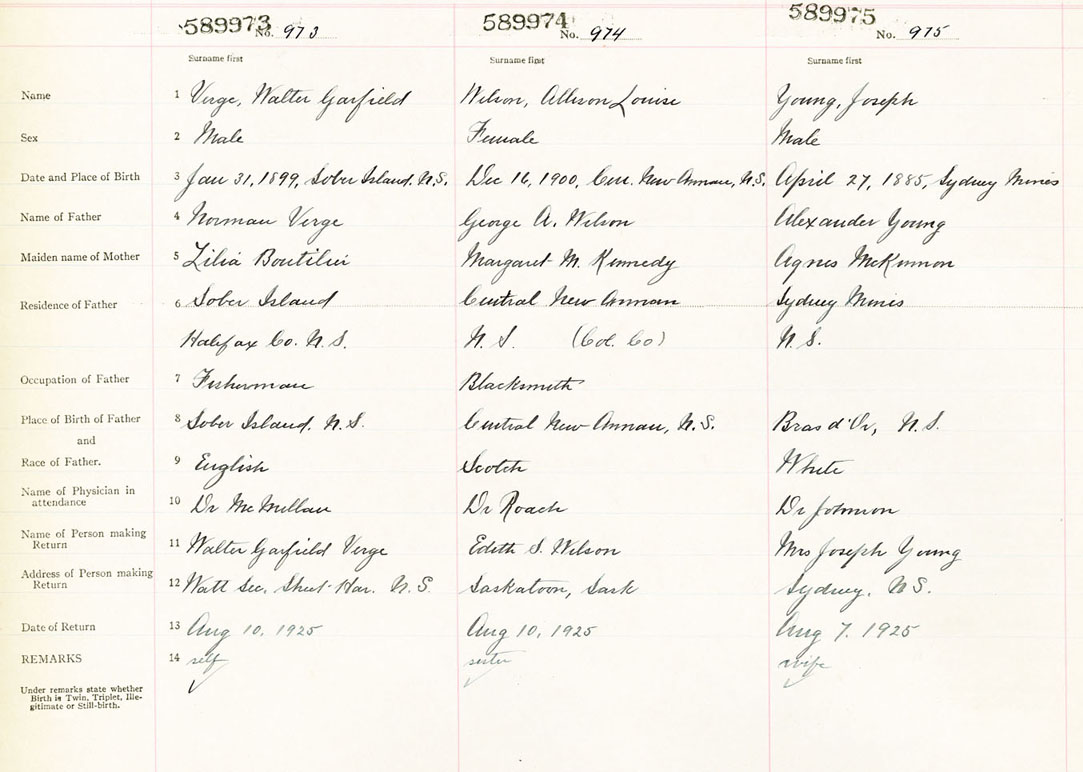 589973 589974 589975
No. 973 No. 974 No. 975
Surname first Surname first Surname first
Name 1 Verge, Walter Garfield Wilson, Allison Louise Young, Joseph
Sex 2 Male Female Male
Date and Place of Birth 3 Jan 31, 1899, Sober Island. N.S. Dec 16, 1900, Cen. New Annan, N.S. April 27, 1885, Sydney Mines
Name of Father 4 Norman Verge George A. Wilson Alexander Young
Maiden name of Mother 5 Lilia Boutilier Margaret M. Kennedy Agnes McKinnon
Residence of Father 6 Sober Island Central New Annan Sydney Mines
Halifax Co. N.S. N.S. (Col. Co) N.S.
Occupation of Father 7 Fisherman Blacksmith
Place of Birth of Father 8 Sober Island. N.S. Central New Annan, N.S. Bras d'Or, N.S.
and
Race of Father. 9 English Scotch White
Name of Physician in
attendance 10 Dr McMillan Dr Roach Dr Johnson
Name of Person making
Return 11 Walter Garfield Verge Edith S. Wilson Mrs Joseph Young
Address of Person making
Return 12 Watt Sec. Sheet Har. N.S. Saskatoon, Sask Sydney. N.S.
Date of Return 13 Aug 10, 1925 Aug 10, 1925 Aug 7. 1925
REMARKS 14 self sister wife
Under remarks state whether
Birth is Twin, Triplet, Ille-
gitimate or Still-birth.